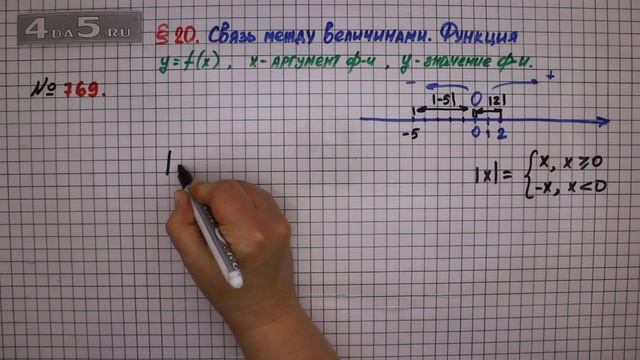 4DA5.RU
§ 20. Связь между величинами. Функция
y = f(x), x - аргумент ф-и, y - значение ф-и.
№ 769.
- +
|-5| 0 |2|
-5 0 1 2
|x| = { x, x ⩾ 0
-x, x < 0
|